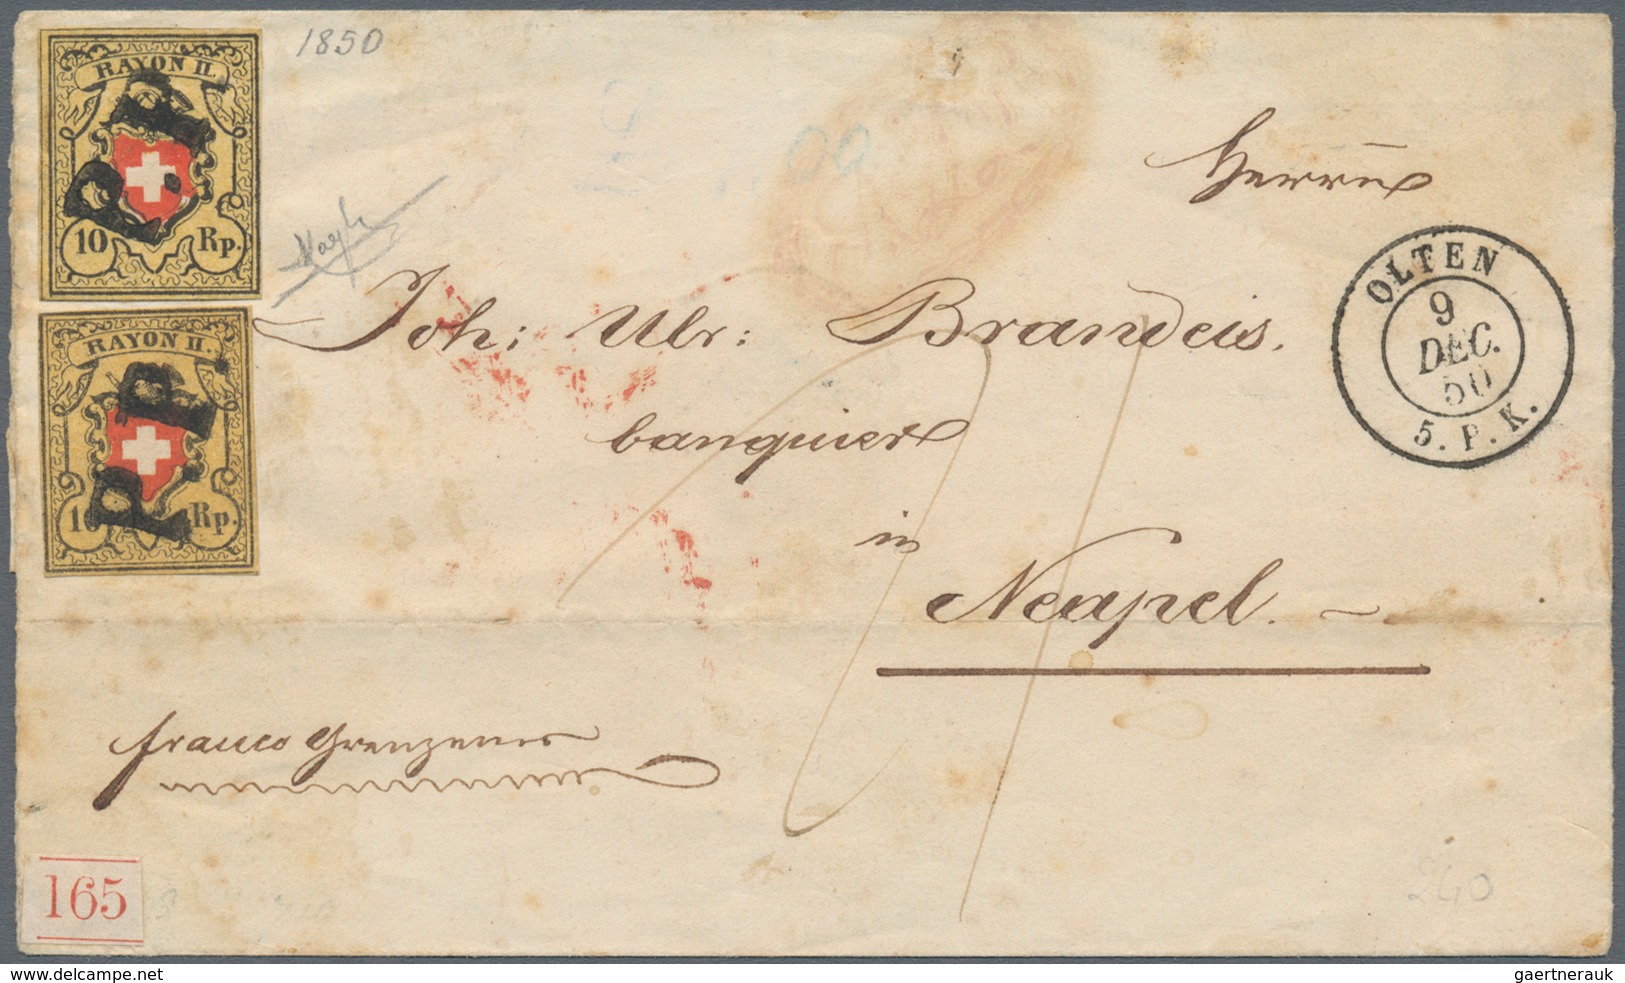 1850
RAYON II.
P.P.
10 Rp.
RAYON II.
P.P.
10 Rp.
Herrn
Joh: Ulr: Brandeis.
banquier
in
Neapel. ~
OLTEN
9
DEC.
50
5. P. K.
franco Grenzen
165
240
www.delcampe.net
gaertnerauk